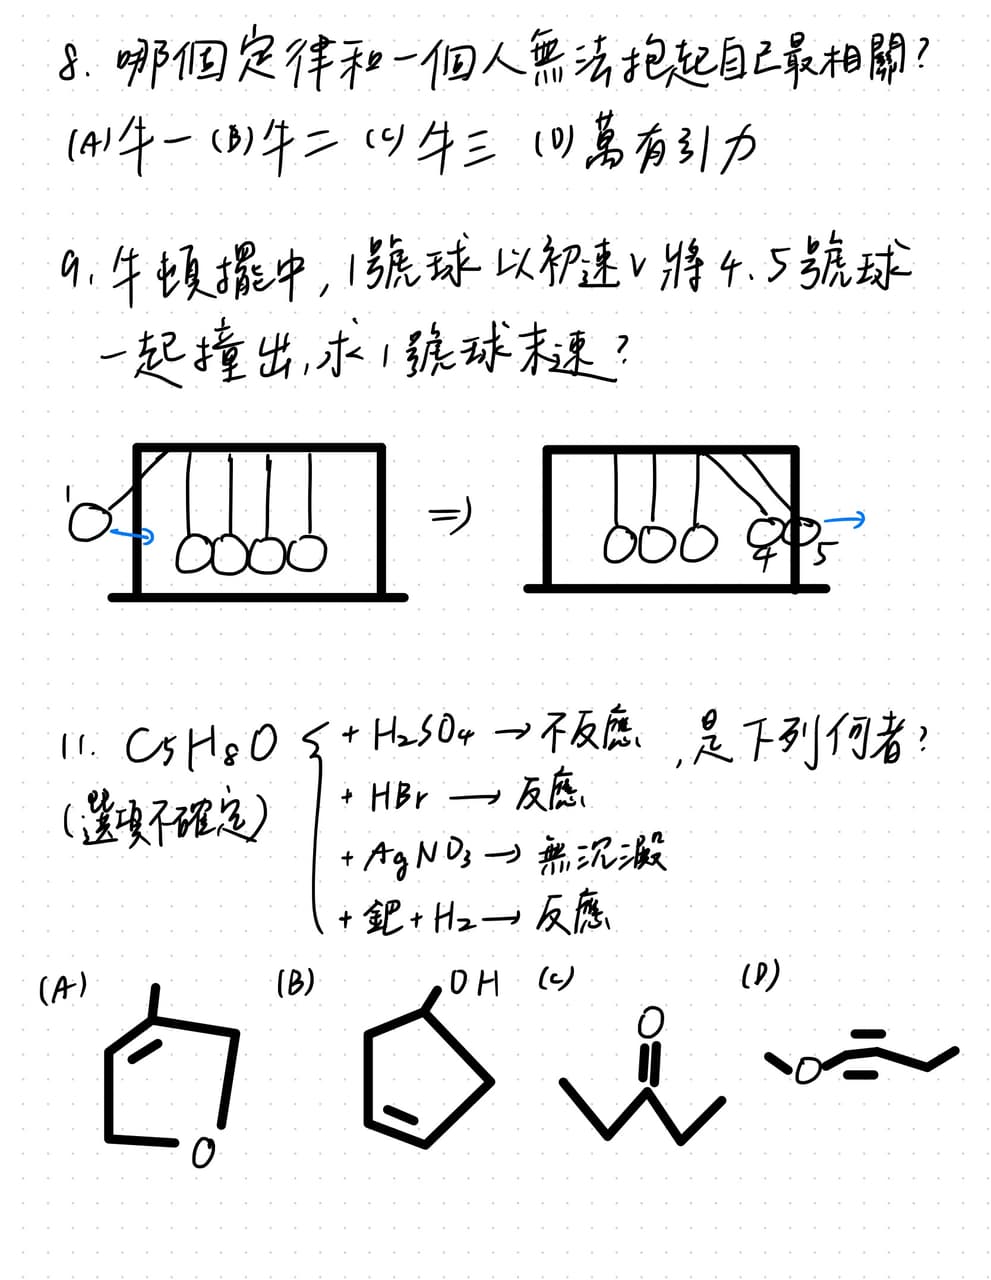 8. 哪個定律和一個人無法抱起自己最相關?
(A)牛一 (B)牛二 (C)牛三 (D)萬有引力
9. 牛頓擺中, 1號球以初速v將4.5號球
一起撞出,求1號球末速?
1
=>
4
5
11. C5H8O + H2SO4 → 不反應 ,是下列何者?
(選項不確定) + HBr → 反應
+ AgNO3 → 無沉澱
+ 鈀 + H2 → 反應
(A) (B) OH (C) (D)
O
O
O